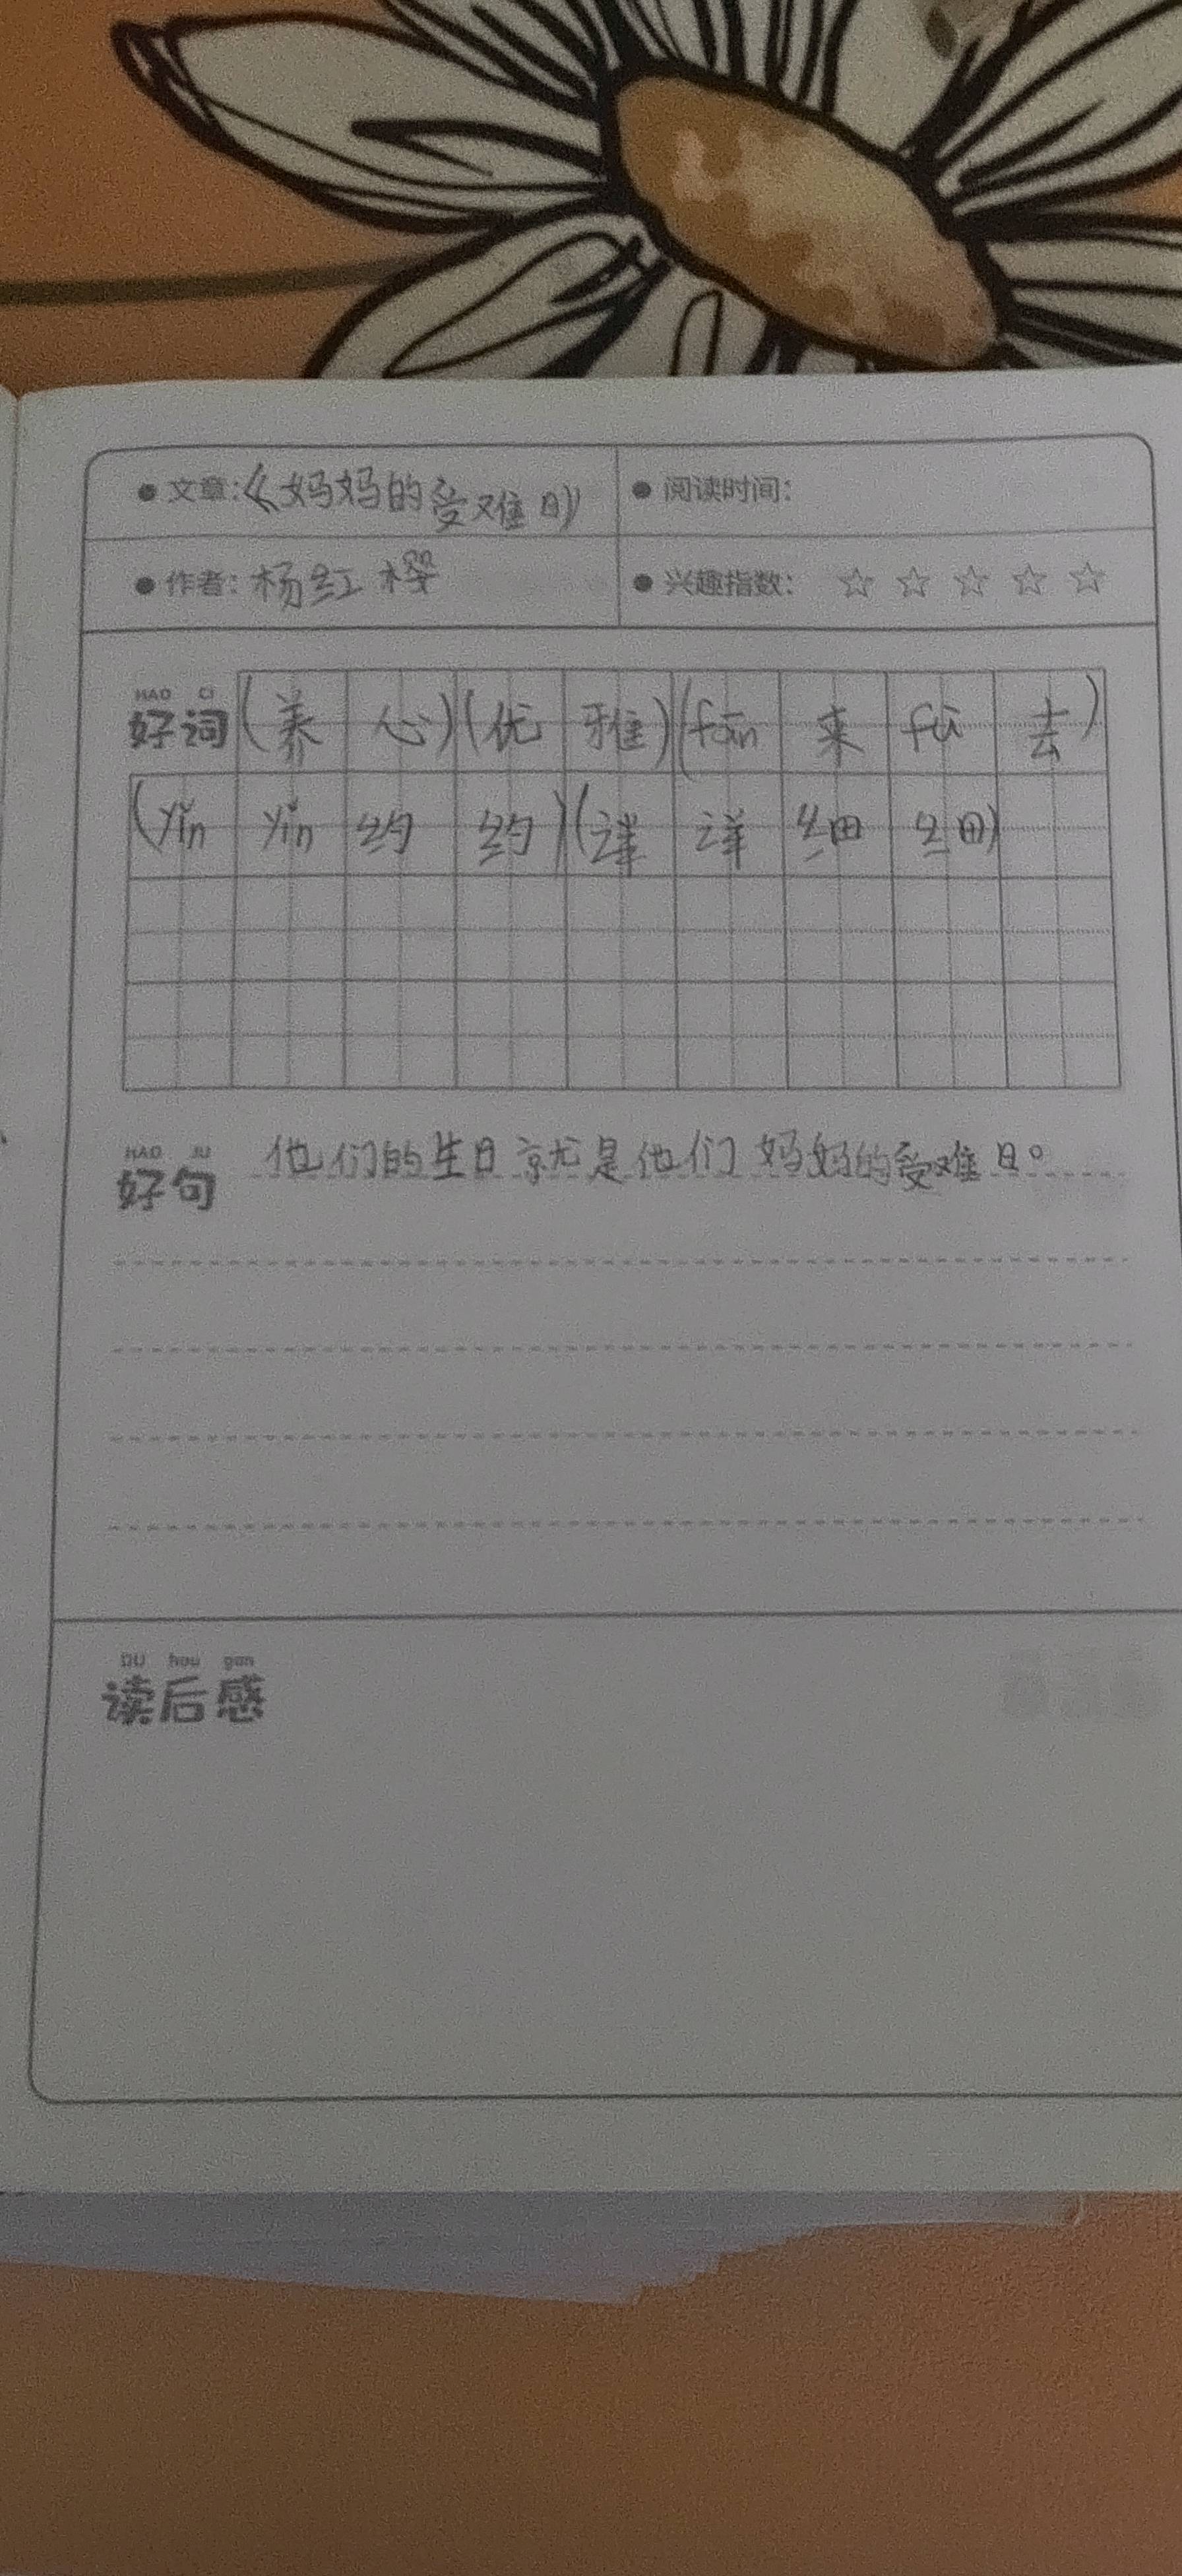 文章:《妈妈的受难日》
阅读时间:
作者:杨红樱
兴趣指数: ☆ ☆ ☆ ☆ ☆
HAO CI
好词(养心)(优雅)(fān来fù去)
(yǐn yǐn约约)(详详细细)
HAO JU
好句 他们的生日就是他们妈妈的受难日。
DU hou gan
读后感